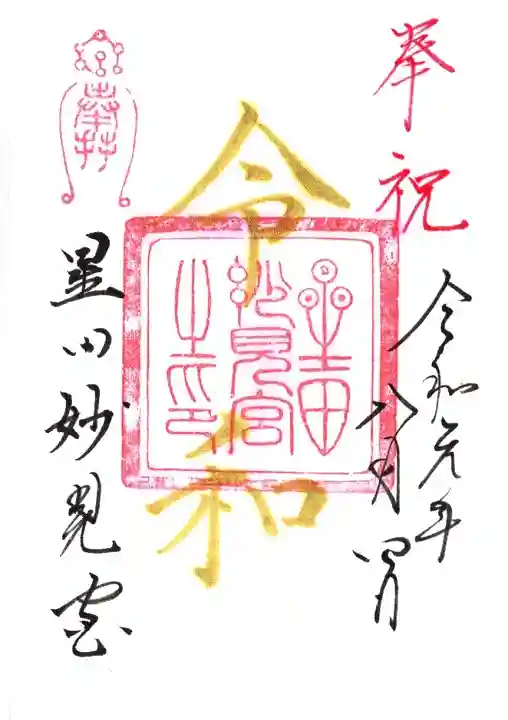 奉祝
令和元年
八月四日
令和
星田
妙見宮
之印
奉拝
星田妙見宮